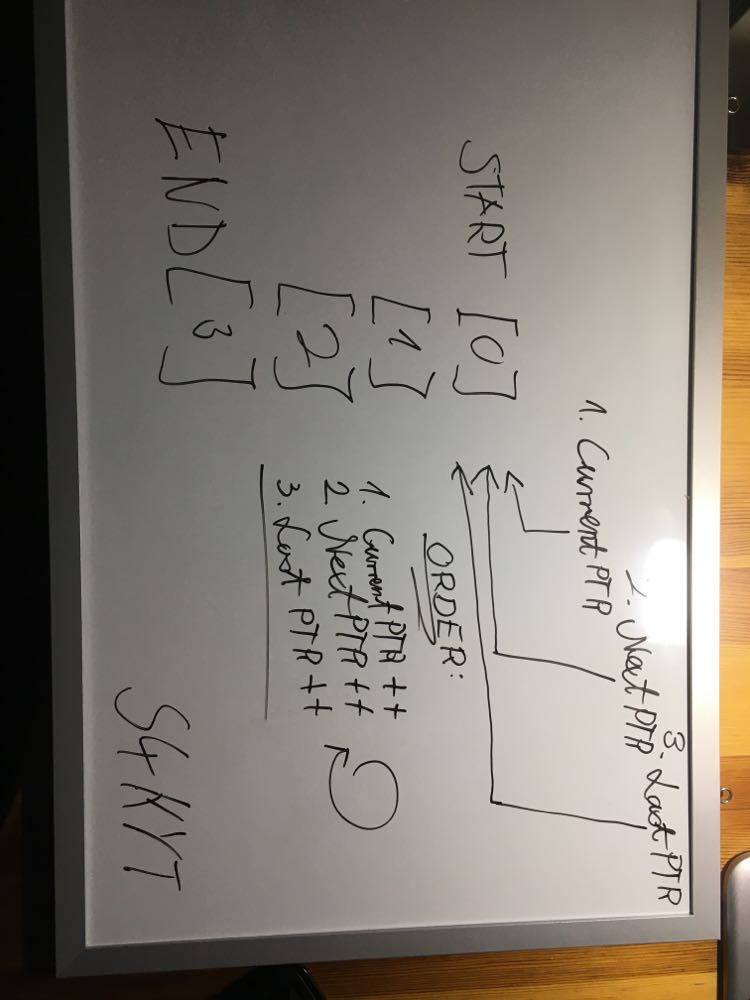 3. Last PTR
2. Next PTR
1. Current PTR
START [0]
[1]
[2]
END [3]
ORDER:
1. Current PTR ++
2 Next PTR ++
3. Last PTR ++
S4KYT